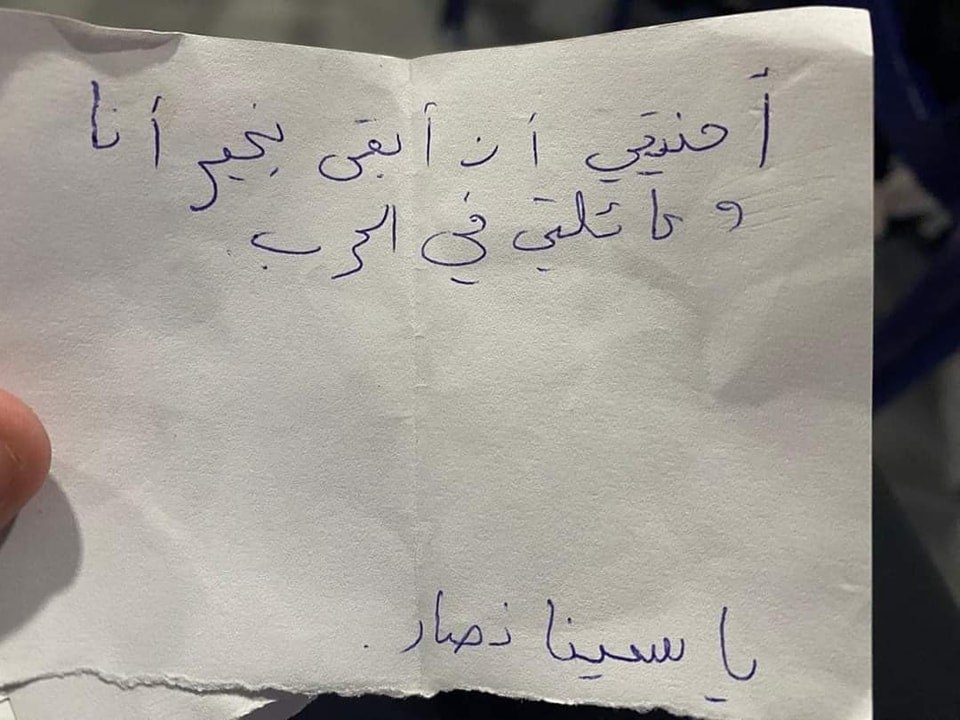 أمنيتي أن أبقى بخير أنا
و عائلتي في الحرب
ياسينا نصار.